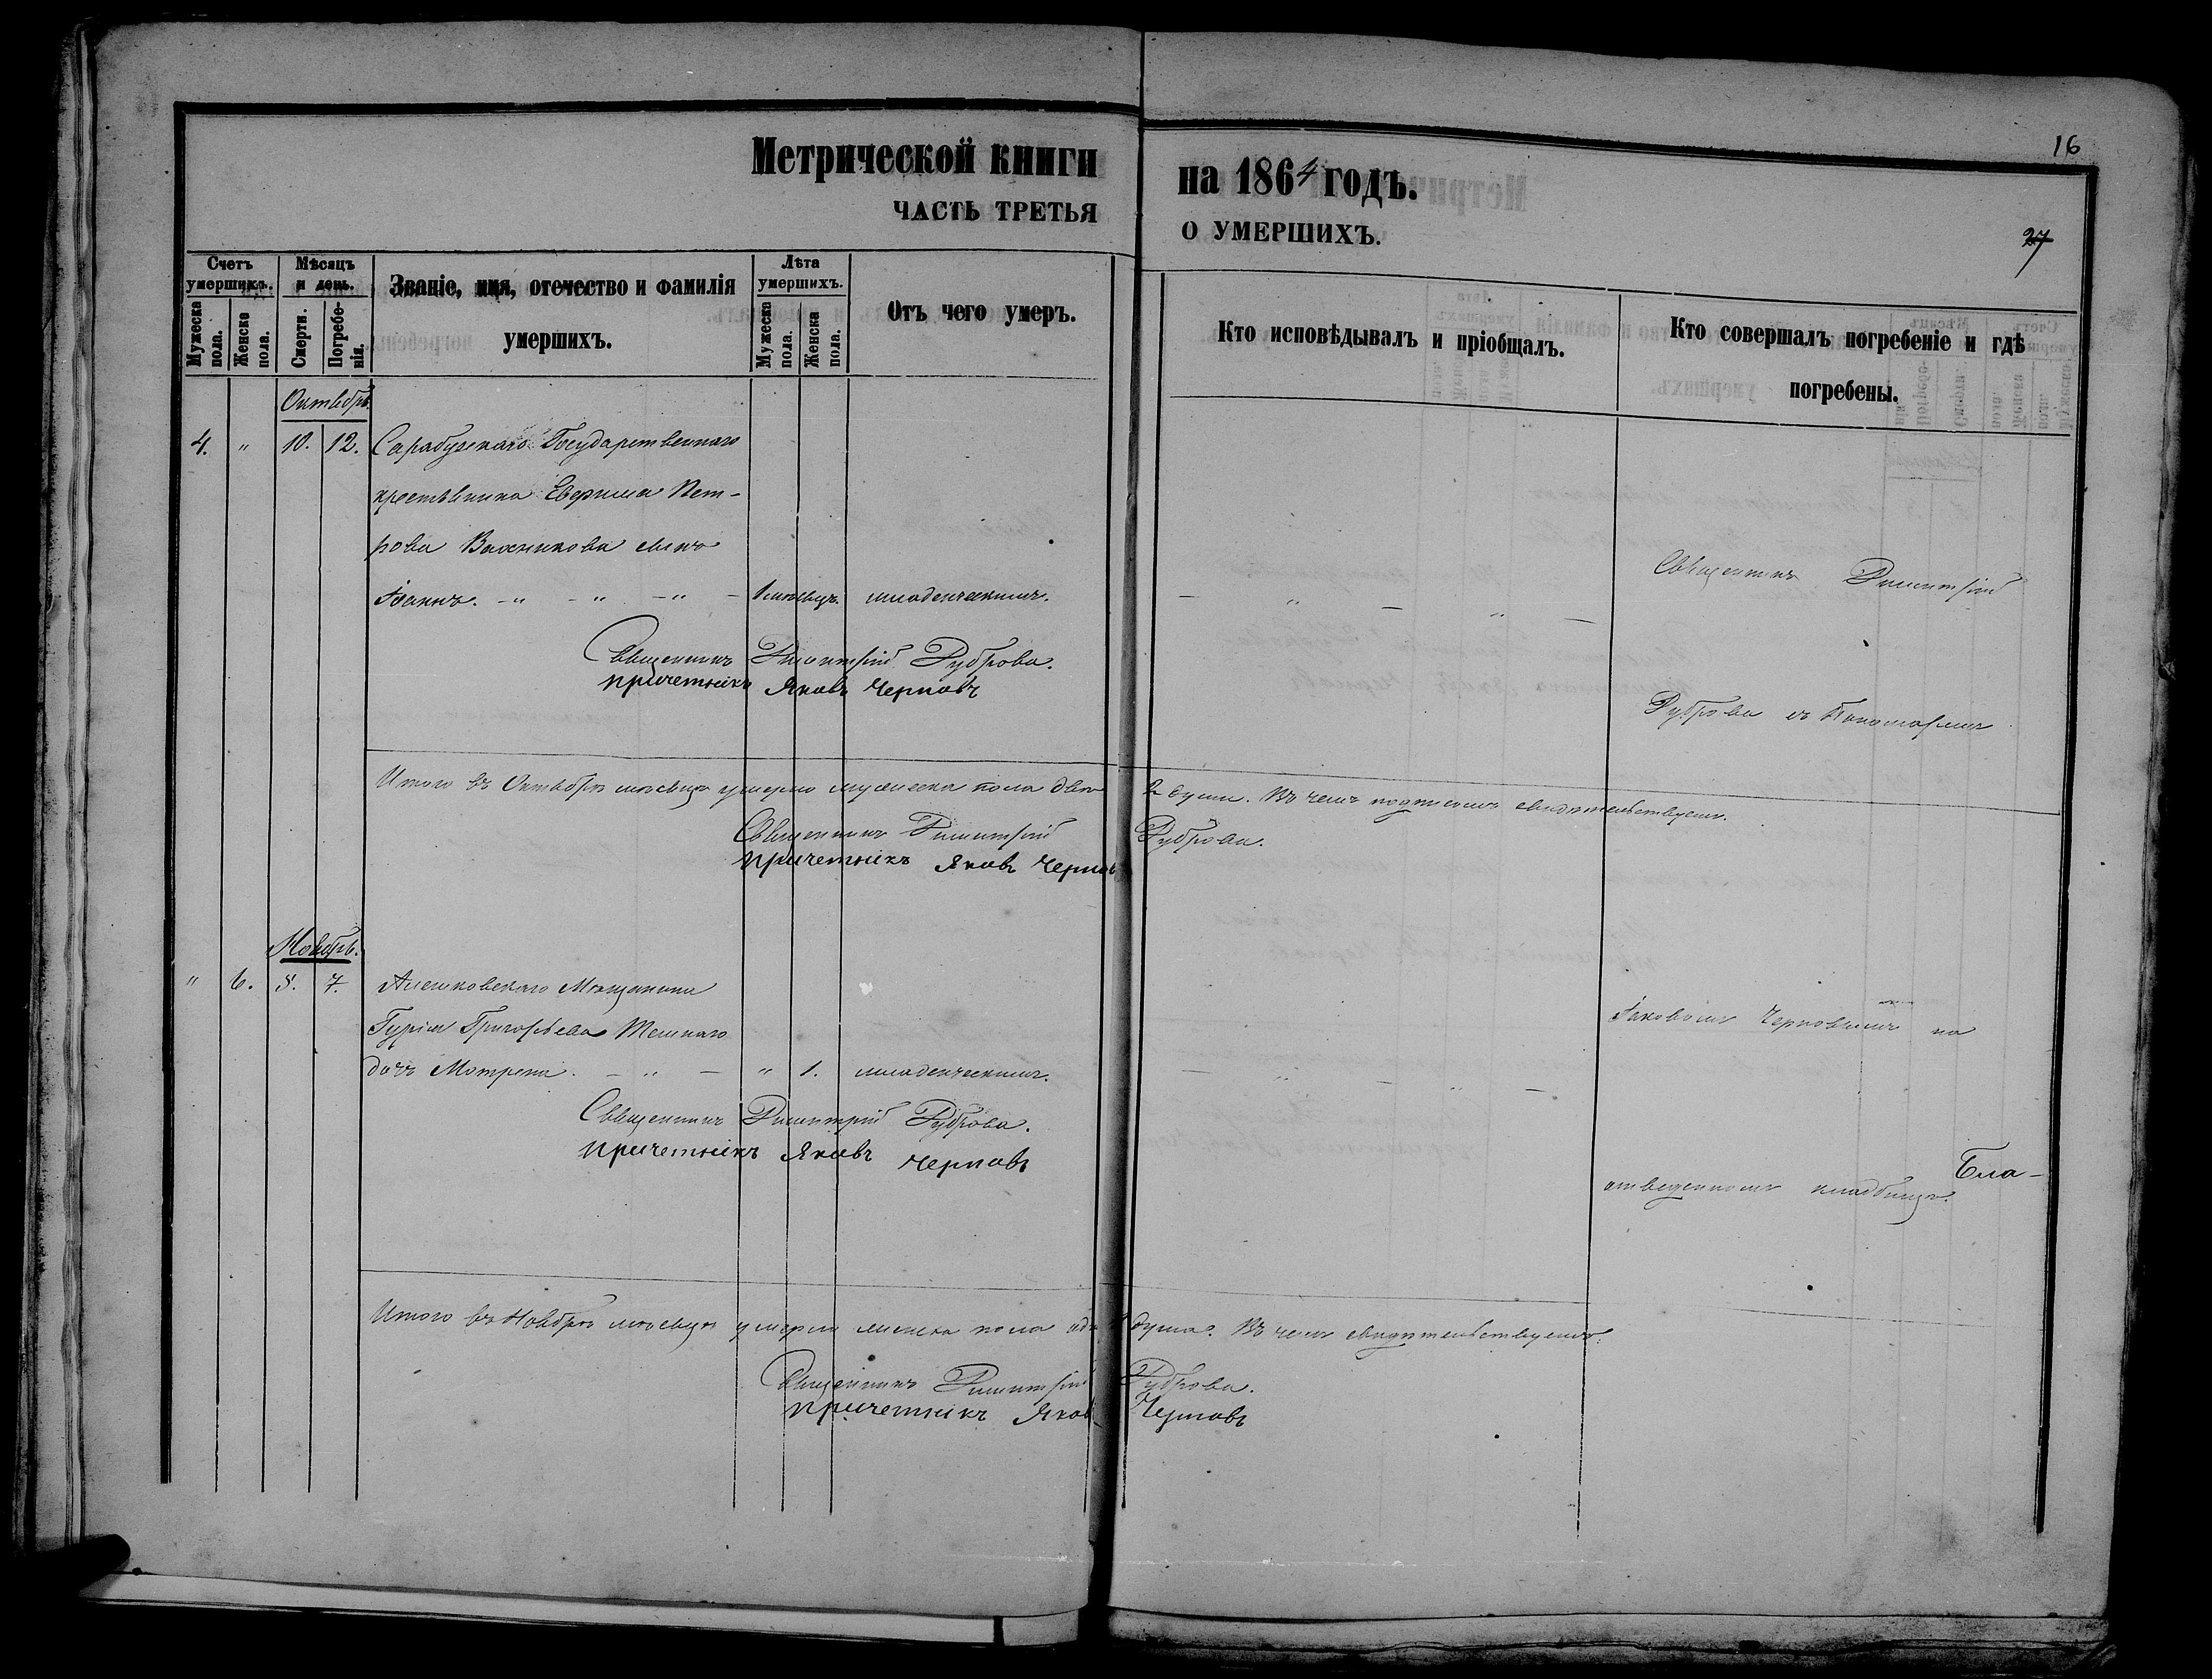 16
Метрической книги на 1864 годъ.
ЧАСТЬ ТРЕТЬЯ О УМЕРШИХЪ.
27
Счетъ умершихъ.
Мужеска пола.
Женска пола.
Мѣсяцъ и день.
Смерти.
Погребенія.
Званіе, имя, отечество и фамилія
умершихъ.
Лѣта умершихъ.
Мужеска пола.
Женска пола.
Отъ чего умеръ.
Кто исповѣдывалъ и пріобщалъ.
Кто совершалъ погребеніе и гдѣ
погребены.
Октябрь.
4. " 10. 12. Сарабузскаго Государственнаго
крестьянина Евфима Пет-
рова сынъ
Іоаннъ. - " - " - " - 1 мѣсяцъ. младенческимъ. - " - " -
Священникъ Димитрій
Священникъ Димитрій Дуброва.
Причетникъ Яковъ Черновъ
Дуброва съ Пономаремъ
Итого въ Октябрѣ мѣсяцѣ умерло мужеска пола двѣ души. Въ чемъ подписомъ свидѣтельствуемъ.
Священникъ Димитрій Дуброва.
Причетникъ Яковъ Чернов
Ноябрь.
" 6. 5. 7. Алешковскаго Мѣщанина
Гурія Григорьева
дочь Мотрена. - " - " 1. младенческимъ. - " - " -
Іаковомъ Черновымъ на
Священникъ Димитрій Дуброва.
Причетникъ Яковъ Черновъ
отведенномъ кладбищѣ.
Бла-
Итого въ Ноябрѣ мѣсяцѣ умерло женска пола одна душа. Въ чемъ свидѣтельствуемъ:
Священникъ Димитрій Дуброва.
Причетникъ Яковъ Черновъ